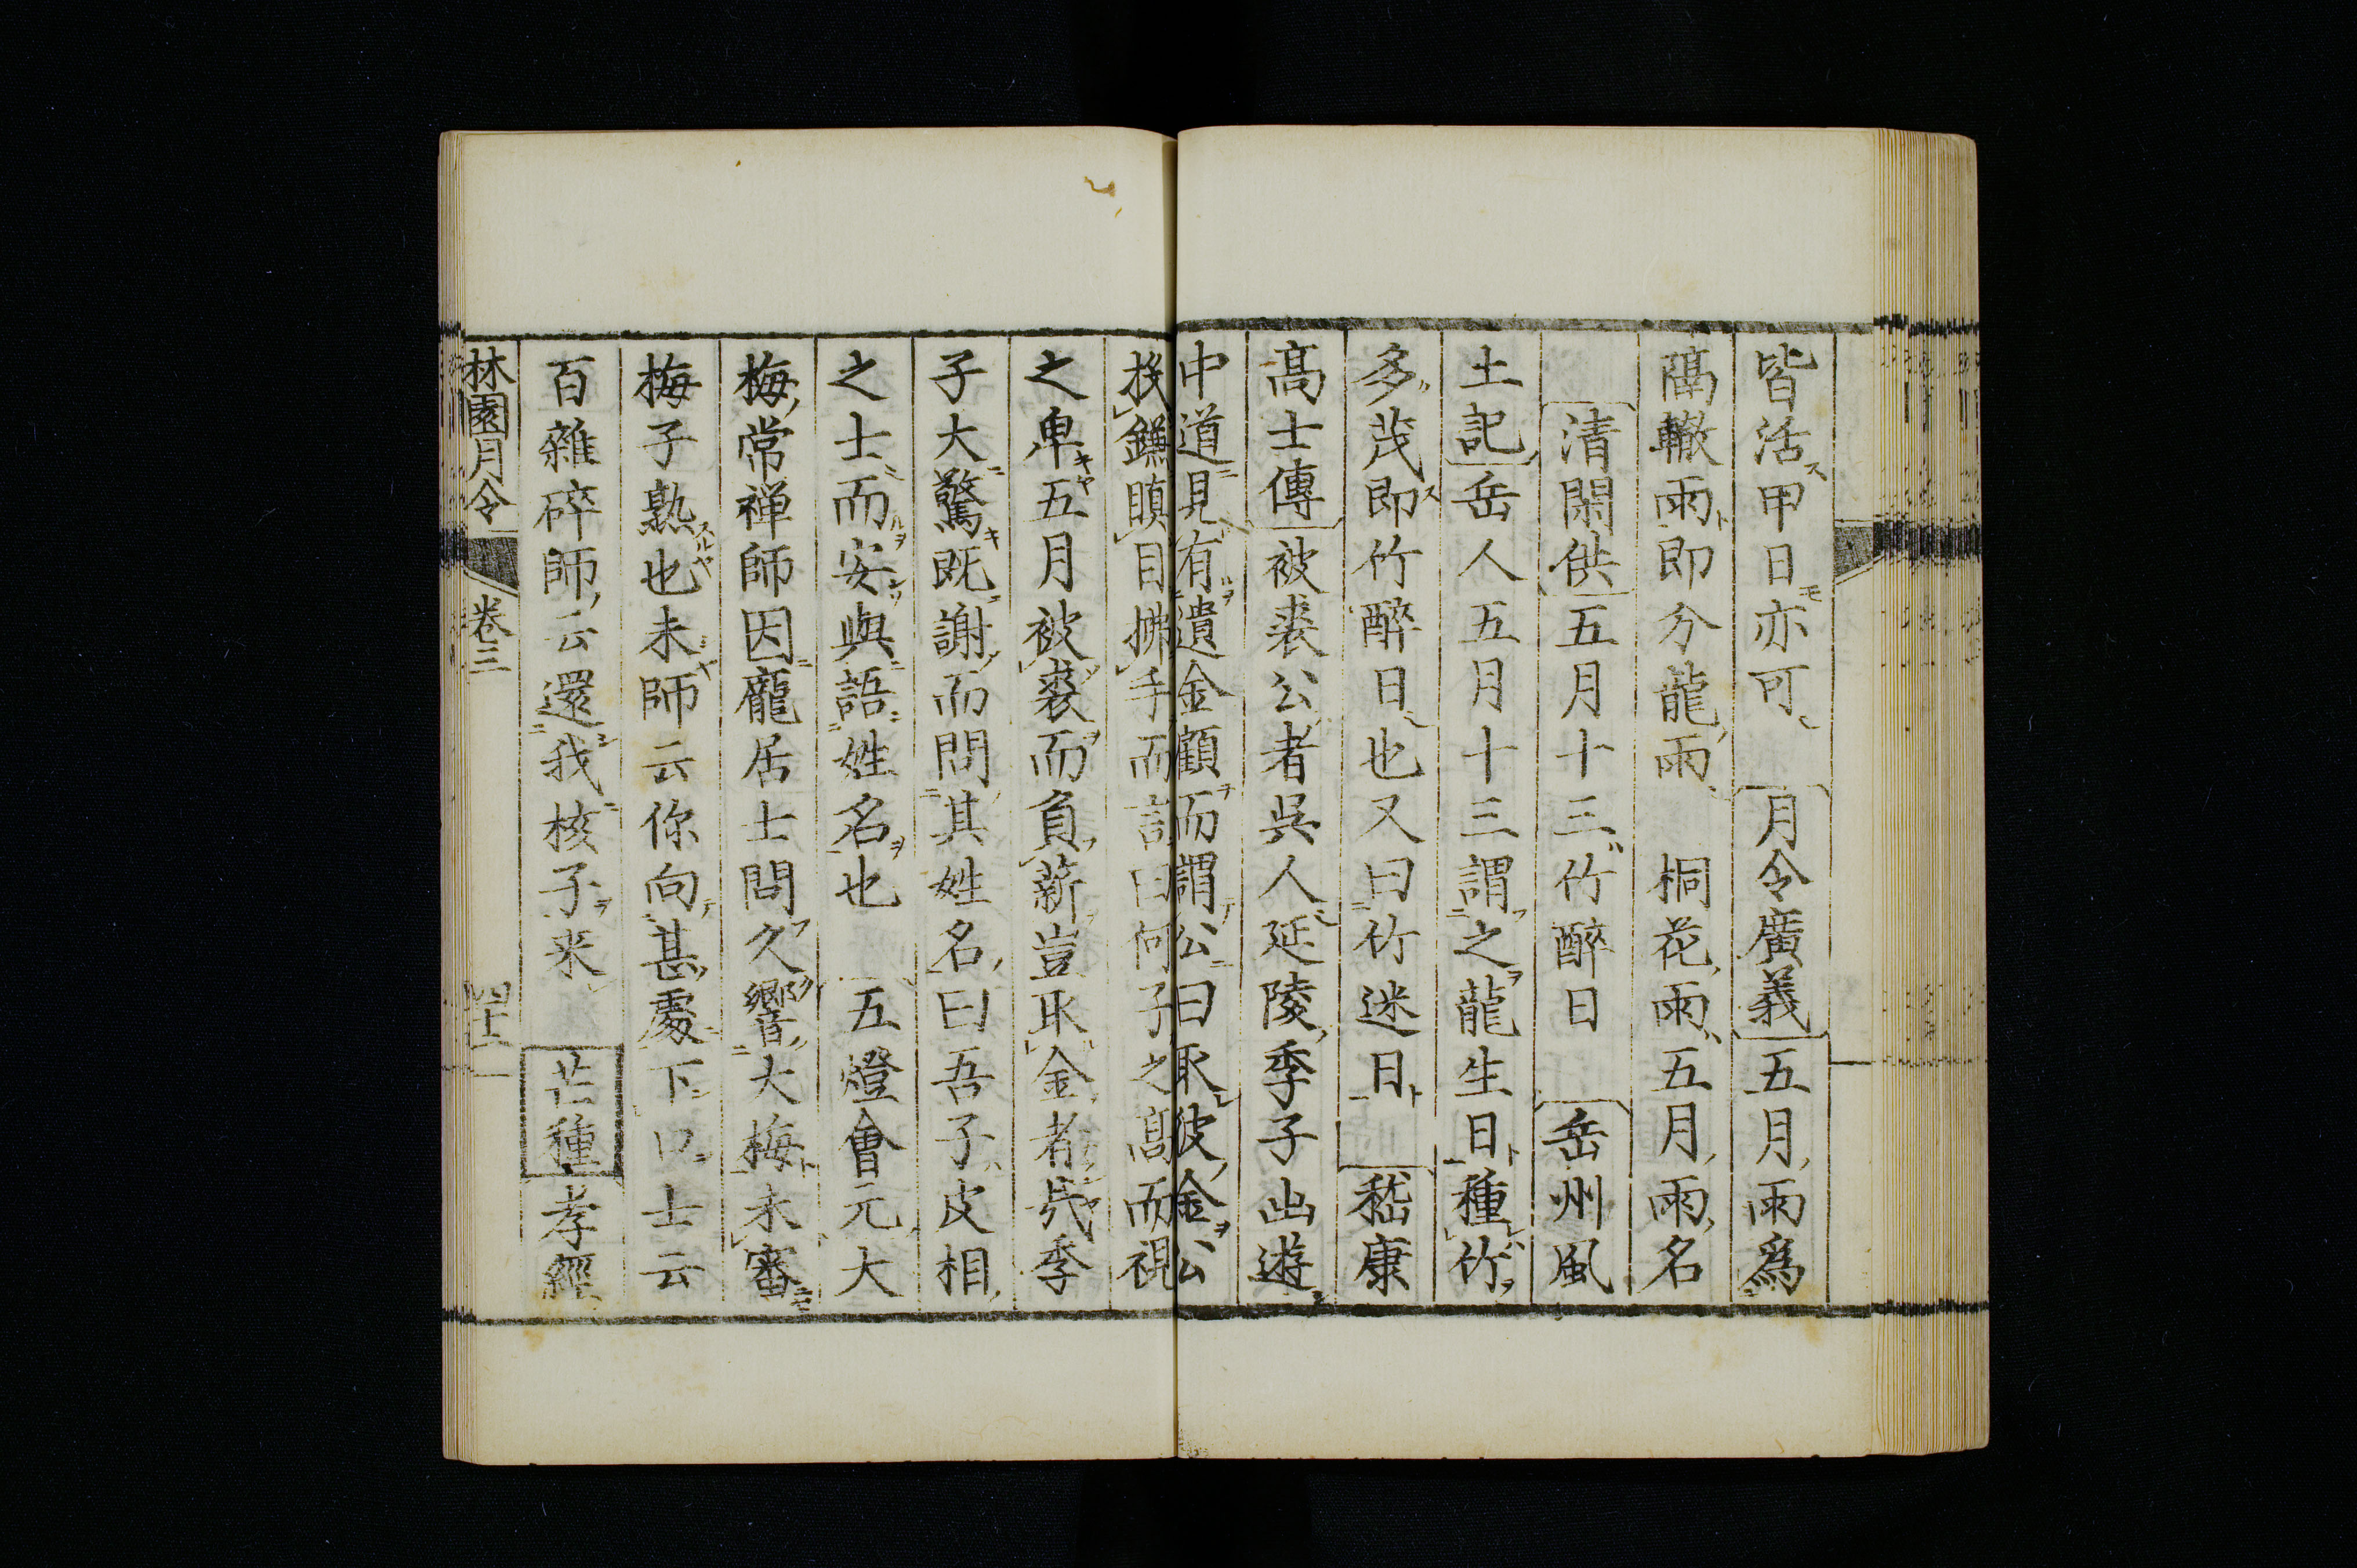 皆活甲日亦可　月令廣義五月雨爲
隔轍雨即分龍雨　桐花雨五月雨名
清閑供五月十三竹醉日　岳州風
土記岳人五月十三謂之龍生日種竹
多茂即竹醉日也又曰竹迷日　嵆康
高士傳被裘公者吳人延陵季子出遊
中道見有遺金顧而謂公曰取彼金公
投鎌瞋目拂手而言曰何子之高而視
之卑五月被裘而負薪豈取金者哉季
子大驚既謝而問其姓名曰吾子皮相
之士而安與語姓名也　五燈會元大
梅常禅師因龐居士問久響大梅未審
梅子熟也未師云你向甚處下口士云
百雜碎師云還我核子来　芒種孝經
林園月令　卷三